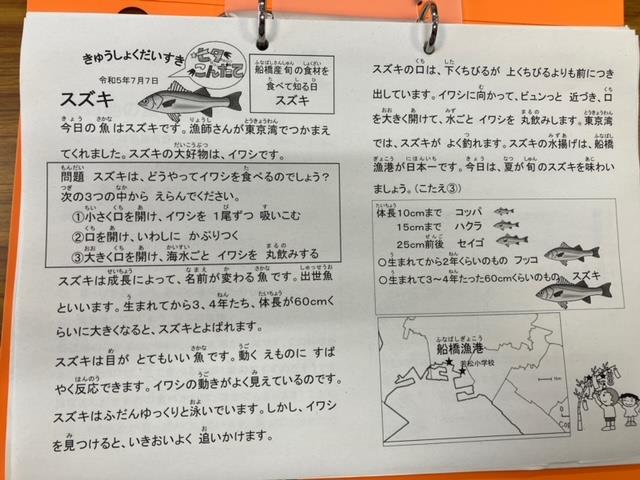 きゅうしょくだいすき
七夕
こんだて
令和5年7月7日
船橋産旬の食材を
食べて知る日
スズキ
スズキ
今日の魚はスズキです。漁師さんが東京湾でつかまえ
てくれました。スズキの大好物は、イワシです。
問題 スズキは、どうやってイワシを食べるのでしょう?
次の3つの中から えらんでください。
①小さく口を開け、イワシを 1尾ずつ 吸いこむ
②口を開け、いわしに かぶりつく
③大きく口を開け、海水ごと イワシを 丸飲みする
スズキは成長によって、名前が変わる魚です。出世魚
といいます。生まれてから3、4年たち、体長が60cmく
らいに大きくなると、スズキとよばれます。
スズキは目が とてもいい魚です。動く えものに すば
やく反応できます。イワシの動きがよく見えているのです。
スズキはふだんゆっくりと泳いでいます。しかし、イワシ
を見つけると、いきおいよく 追いかけます。
スズキの口は、下くちびるが 上くちびるよりも前につき
出しています。イワシに向かって、ビュンっと 近づき、口
を大きく開けて、水ごと イワシを丸飲みします。東京湾
では、スズキが よく釣れます。スズキの水揚げは、船橋
漁港が日本一です。今日は、夏が旬のスズキを味わい
ましょう。(こたえ③)
体長10cmまで コッパ
15cmまで ハクラ
25cm前後 セイゴ
○生まれてから2年くらいのもの フッコ
○生まれて3~4年たった60cmくらいのもの スズキ
船橋漁港
若松小学校